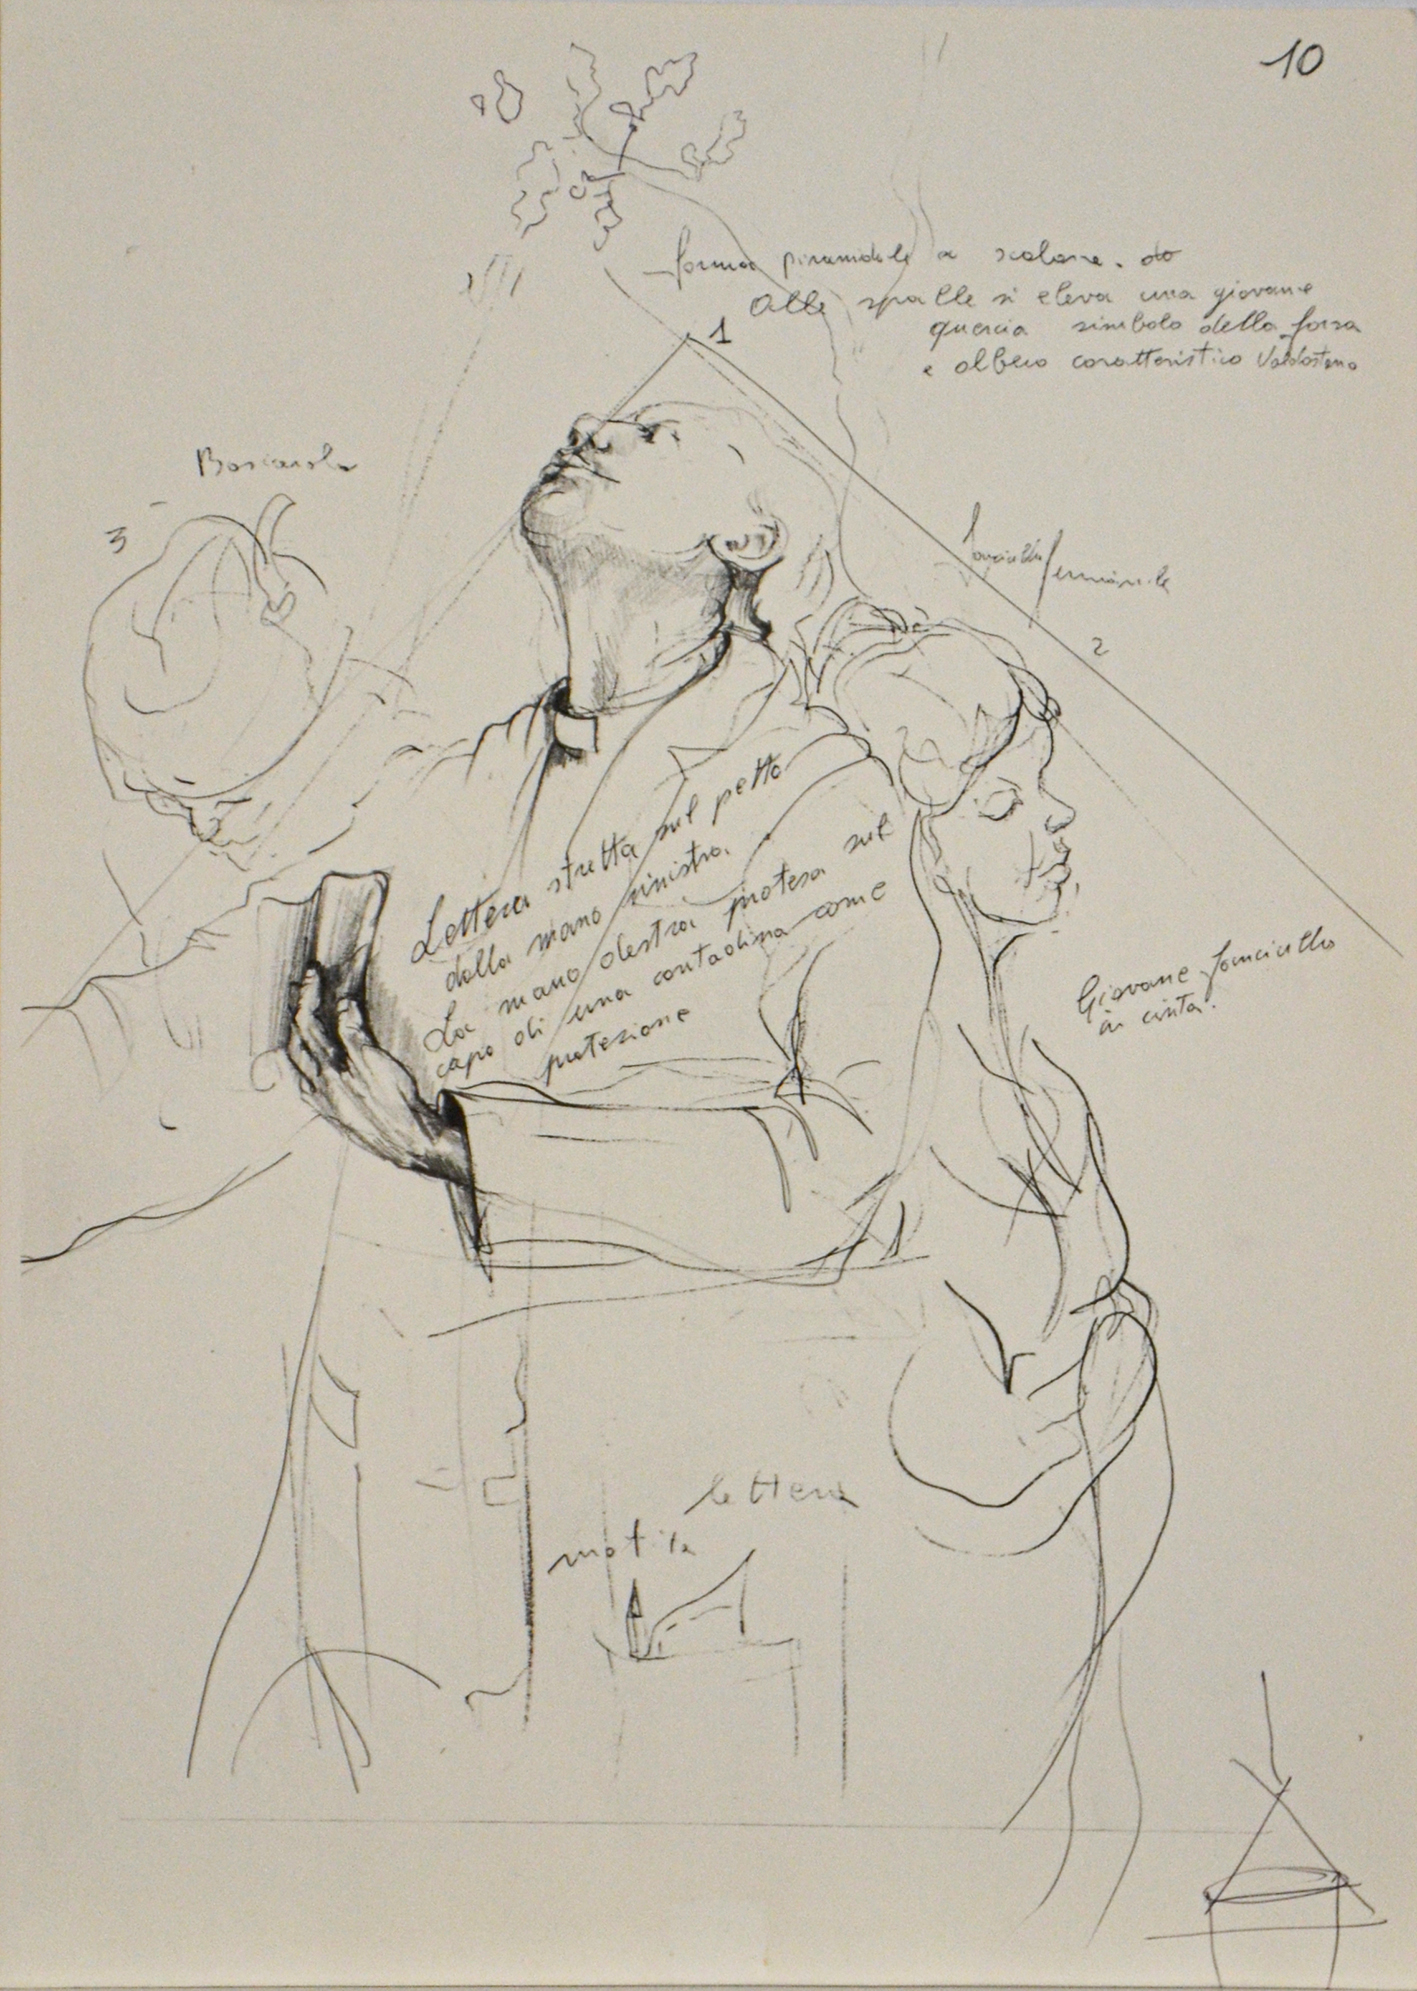 10
forma piramidale a scalare. do
Alle spalle si eleva una giovane
quercia simbolo della forza
e albero caratteristico Valdostano
1
3
2
Lettera stretta sul petto
dalla mano sinistra.
La mano destra protesa sul
capo di una contadina come
protezione
Giovane fanciulla
in cinta.
lettera
matita